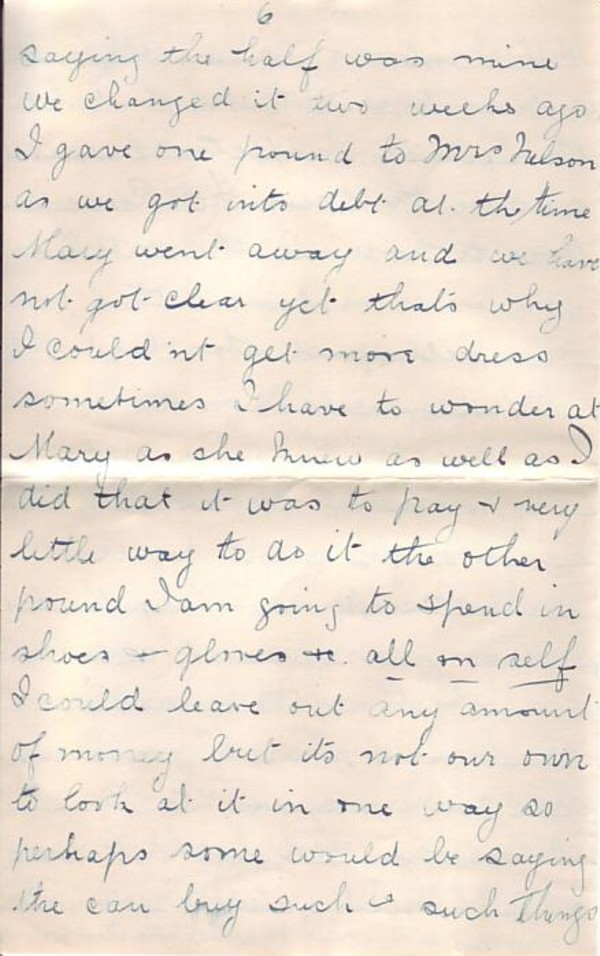 6
saying the half was mine
we changed it two weeks ago
I gave one pound to Mrs Nelson
as we got into debt at the time
Mary went away and we have
not got clear yet that's why
I could'nt get more dress
sometimes I have to wonder at
Mary as she knew as well as I
did that it was to pay & very
little way to do it the other
pound I am going to spend in
shoes & gloves &c. all on self
I could leave out any amount
of money but its not our own
to look at it in one way so
perhaps some would be saying
she can buy such & such things